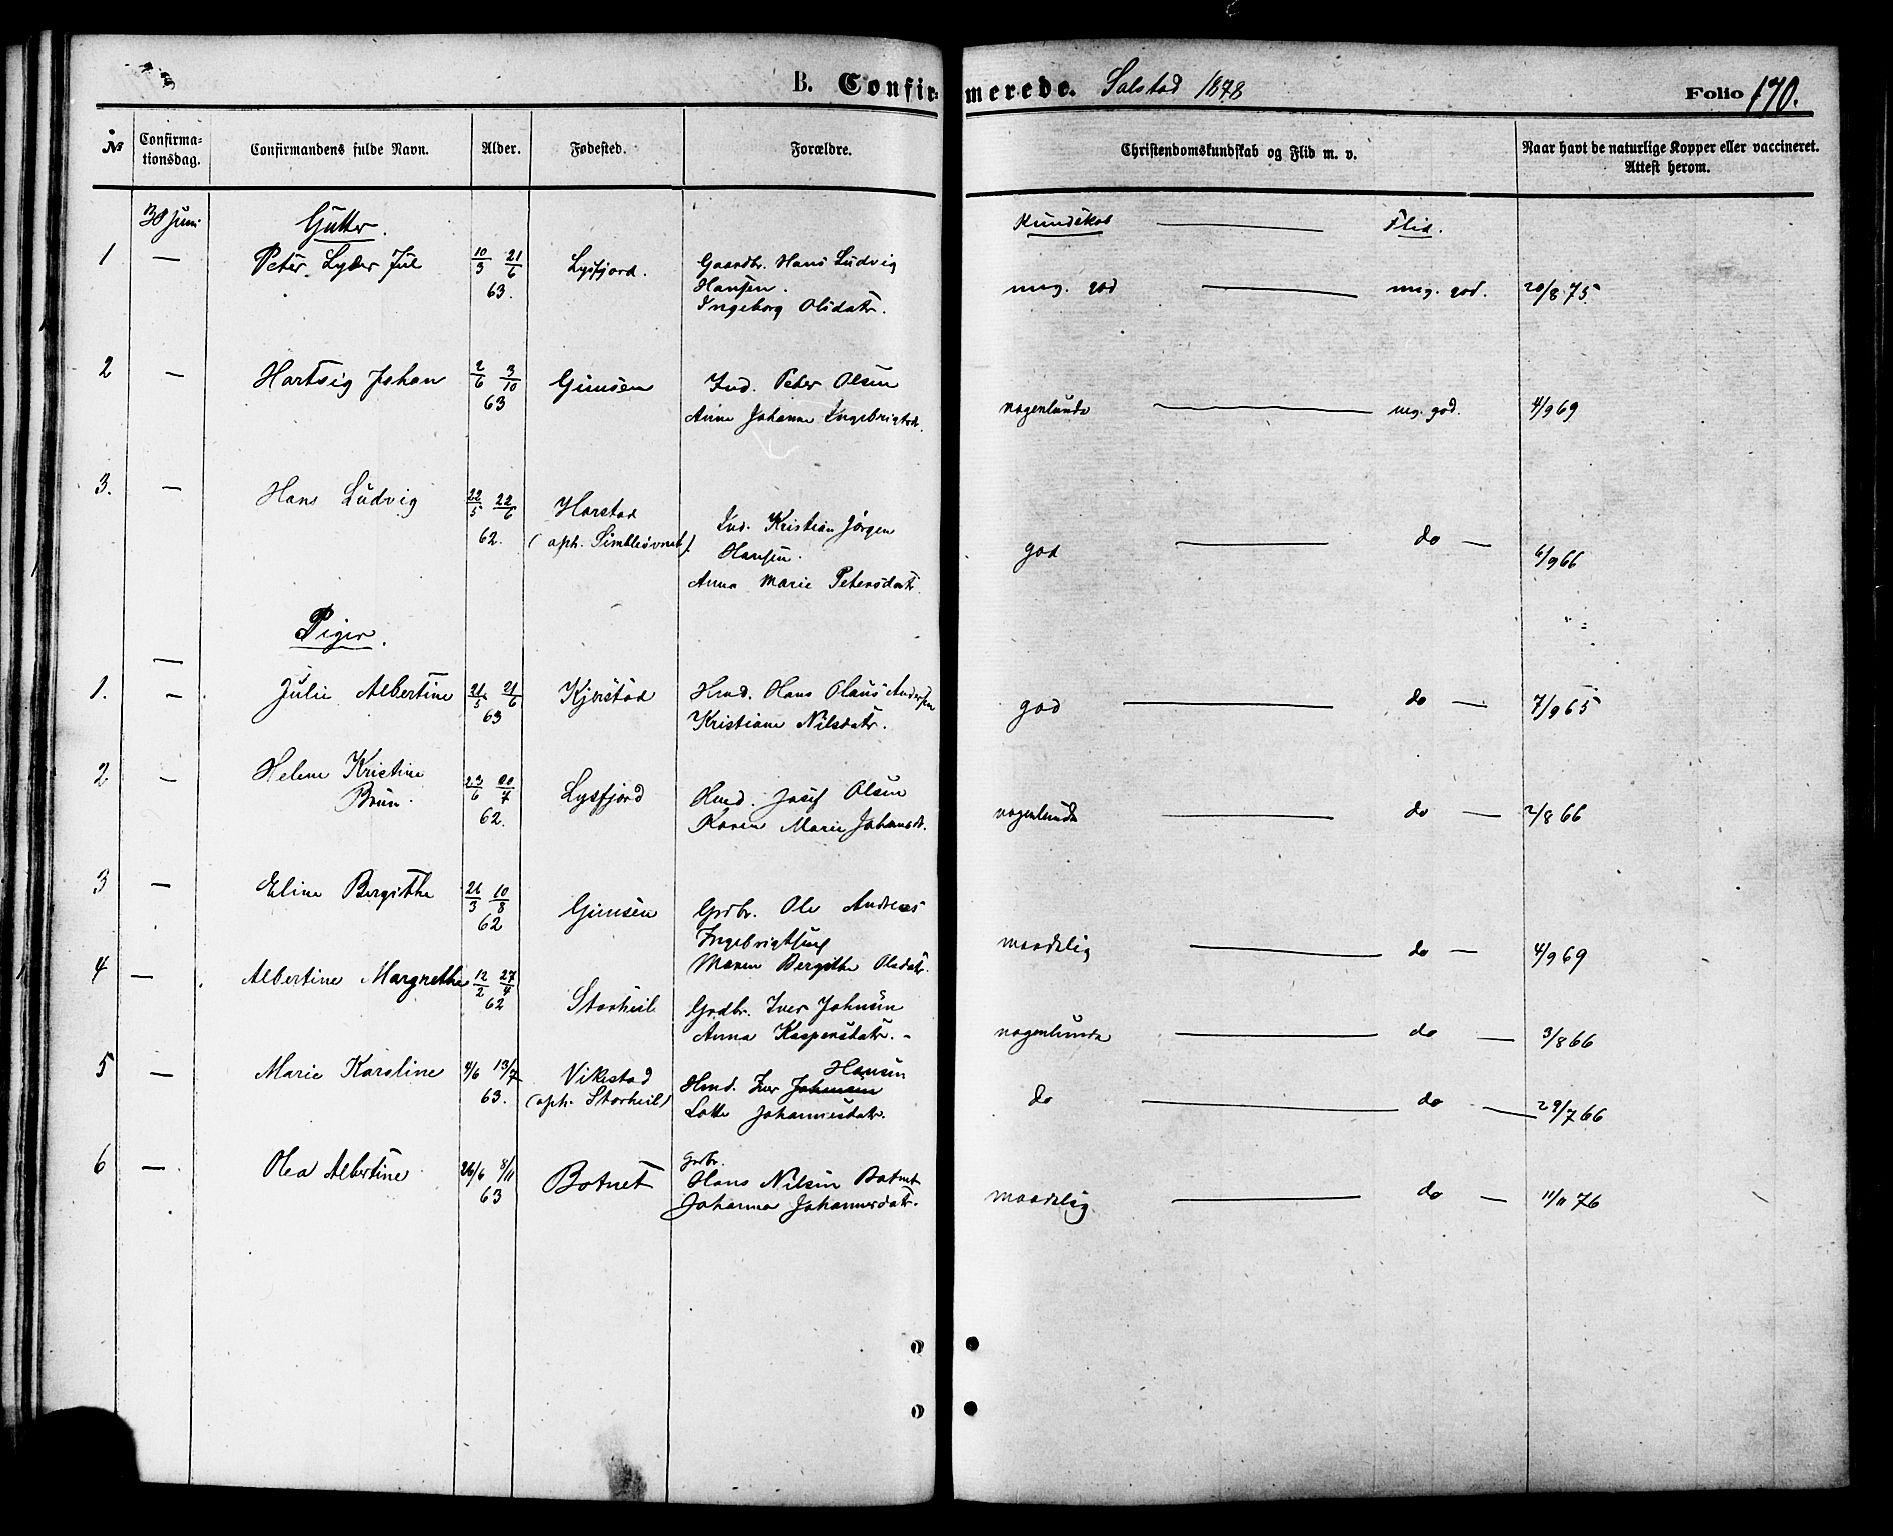 B. Confir-merede. Solstad 1878 Folio 170.
№ Confirma-tionsdag. Confirmandens fulde Navn. Alder. Fødested. Forældre. Christendomskundskab og Flid m. v. Naar havt de naturlige Kopper eller vaccineret. Attest herom.
30 Juni Gutter. Kundskab — Flid.
1 — Peter Lyder Jul 10/3 21/6 63. Lysfjord. Gaardbr. Hans Ludvig
Hansen.
Ingeborg Olsdatr.
mg. god — mg. god. 20/8 75
2 — Hartvig Johan 2/6 3/10 63 Gimsen Ind. Peter Olsen
Anne Johanne Ingebrigtsd.
nogenlunde — mg. god. 4/9 69
3. — Hans Ludvig 22/5 22/6 62. Horstad
(oph. Simblesövnet).
Ind. Kristian Jörgen
Hansen.
Anna Marie Petersdatr.
god — do — 6/9 66
Piger.
1. — Julie Albertine 21/5 21/6 63 Kjerstad Hmd. Hans Olaus Andersen
Kristiane Nilsdatr.
god — do — 7/9 65
2 — Helene Kristine
Brun. 23/6 20/7 62. Lysfjord Hmd. Josef Olsen
Karen Marie Johansd.
nogenlunde — do — 2/8 66
3 — Eline Bergitthe 26/3 10/8 62 Gimsen Grdbr. Ole Andreas
Ingebrigtsen
Maren Bergitthe Olsdatr.
maadelig — do — 4/9 69
4 — Albertine Margrethe 12/2 27/4 62 Storheil Grdbr. Iver Johnsen
Anna Kaspersdatr. -
nogenlunde — do — 3/8 66
5 — Marie Karoline 4/6 13/7 63. Vikestad
(oph. Storheil)
Hansen
Hmd. Iver Johnsen
Lotte Johannesdatr.
do — do — 29/7 66
6 — Olea Albertine 26/6 8/11 63 Botnet Grdbr.
Hans Nilsen Botnet
Johanna Johannesdatr.
maadelig — do — 11/11 76